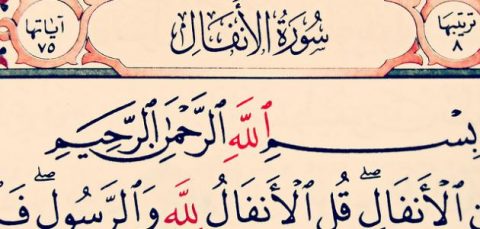 ترتيبها ٨ سُورَةُ الأَنفَال آيَاتها ٧٥
بِسْمِ ٱللَّهِ ٱلرَّحْمَٰنِ ٱلرَّحِيمِ
ٱلْأَنفَالِۖ قُلِ ٱلْأَنفَالُ لِلَّهِ وَٱلرَّسُولِۖ